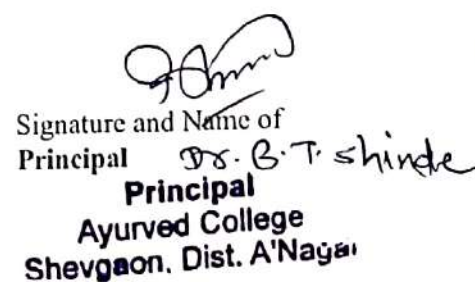 Signature and Name of
Principal Dr. B. T. Shinde
Principal
Ayurved College
Shevgaon, Dist. A'Nagar